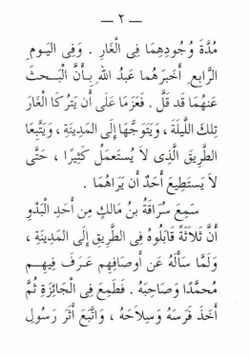 — ٢ —
مُدَّةَ وُجُودِهِمَا فِى الْغَارِ . وَفِى اليَومِ
الرَّابِعِ أَخبَرَهُمَا عَبدُ اللهِ بِأَنَّ البَحثَ
عَنهُمَا قَد قَلَّ . فَعَزَمَا عَلَى أَن يَترُكَا الغَارَ
تِلكَ اللَّيلَةَ ، وَيَتَوَجَّهَا إِلَى المَدِينَةِ ، وَيَتَّبِعَا
الطَّرِيقَ الَّذِى لاَ يُستَعمَلُ كَثِيرًا ، حَتَّى
لاَ يَستَطِيعَ أَحَدٌ أَن يَرَاهُمَا .
سَمِعَ سُرَاقَةُ بنُ مَالِكٍ مِن أَحَدِ البَدْوِ
أَنَّ ثَلاَثَةً قَابَلُوهُ فِى الطَّرِيقِ إِلَى المَدِينَةِ ،
وَلَمَّا سَأَلَهُ عَن أَوصَافِهِم عَرَفَ فِيهِم
مُحَمَّدًا وَصَاحِبَهُ . فَطَمِعَ فِى الجَائِزَةِ ثُمَّ
أَخَذَ فَرَسَهُ وَسِلاَحَهُ ، وَاتَّبَعَ أَثَرَ رَسُولِ